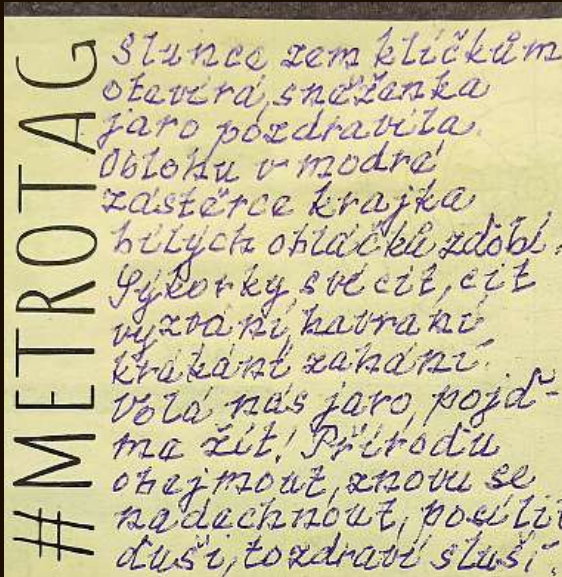 #METROTAG
Slunce zem klíčkům
otevírá, sněženka
jaro pozdravila.
Oblohu v modré
zástěrce krajka
bílých obláčků zdobí.
Sýkorky, své cit, cit
vyzvání, havraní
krákání zahání.
Volá nás jaro, pojď-
me žít! Přírodu
obejmout, znovu se
nadechnout, posílit
duši, to zdraví sluší.